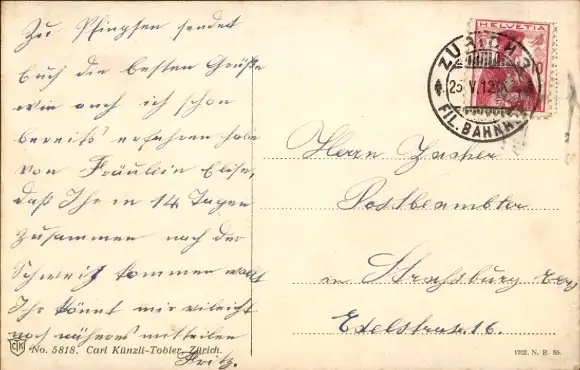 Zu Pfingsten sendet
Euch die besten Grüße
wie auch ich schon
bereits erfahren habe
von Fräulein Elise,
daß Ihr in 14 Tagen
zusammen nach der
Schweiz kommen wollt
Ihr könnt mir vileicht
noch näheres mitteilen
Fritz.
No. 5818. Carl Künzli-Tobler, Zürich.
HELVETIA
10
ZÜRICH
FIL. BAHNH.
Herrn Zacher
Postbeambter
in Straßburg
Edelstrate 16
1702. N. B. 85.